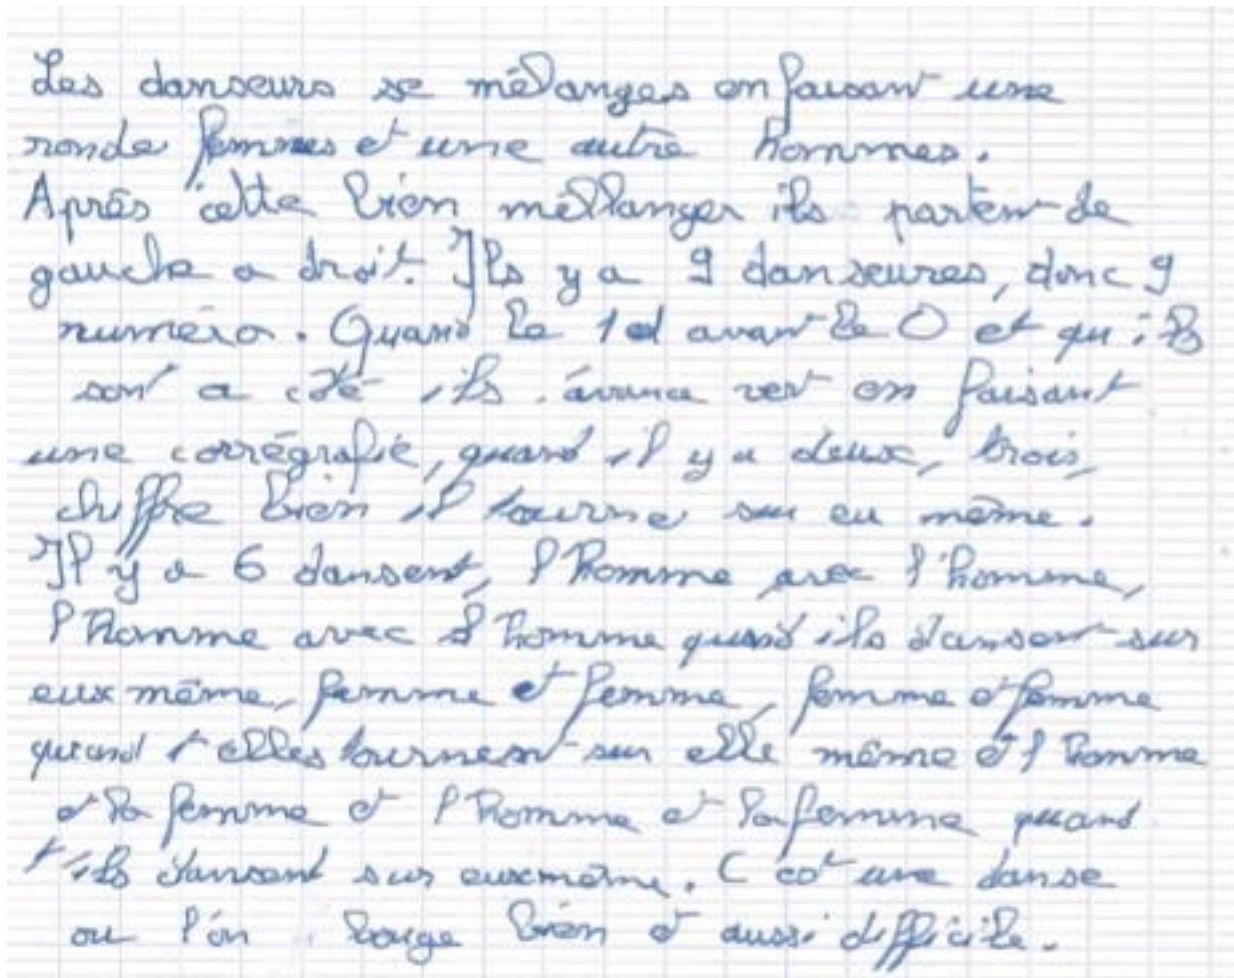 Les danseurs se mélanges en faisant une
ronde femmes et une autre hommes.
Après cette bien mellanger ils partent de
gauche a droit. Ils y a 9 danseures, donc 9
numéro. Quand le 1 et avant le 0 et qu'ils
sont a côté ils avance vert en faisant
une corrégrafie, quand il y a deux, trois,
chiffre bien il tourne sur eu même.
Il y a 6 dansent, l'homme avec l'homme,
l'homme avec l'homme quand ils dansent sur
eux même, femme et femme, femme et femme
quand t elles tournent sur elle même et l'homme
et la femme et l'homme et la femme quand
t'ils dansent sur euxmême. C'est une danse
ou l'on bouge bien et aussi difficile.